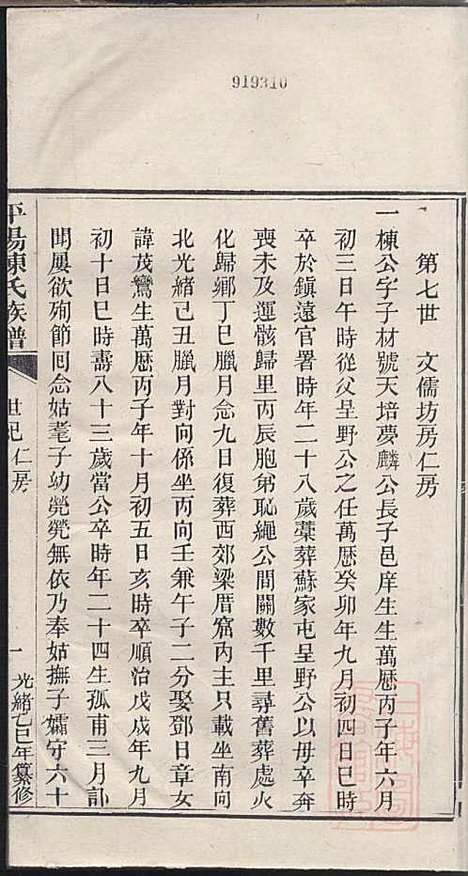 919310
第七世　文儒坊房仁房
一棟公字子材號天培夢麟公長子邑庠生生萬厯丙子年六月
初三日午時從父呈野公之任萬厯癸卯年九月初四日巳時
卒於鎮遠官署時年二十八歲藁葬蘇家屯呈野公以毋卒奔
喪未及運骸歸里丙辰胞弟恥繩公間關數千里尋舊葬處火
化歸鄉丁巳臘月念九日復葬西郊梁厝窩內主只載坐南向
北光緒己丑臘月對向係坐丙向壬兼午子二分娶鄧日章女
諱茂鸞生萬厯丙子年十月初五日亥時卒順治戊戌年九月
初十日巳時壽八十三歲當公卒時年二十四生孤甫三月訃
聞屢欲殉節回念姑耄子幼煢煢無依乃奉姑撫子孀守六十
平陽陳氏族譜　世紀　仁房　一　光緒乙巳年纂修